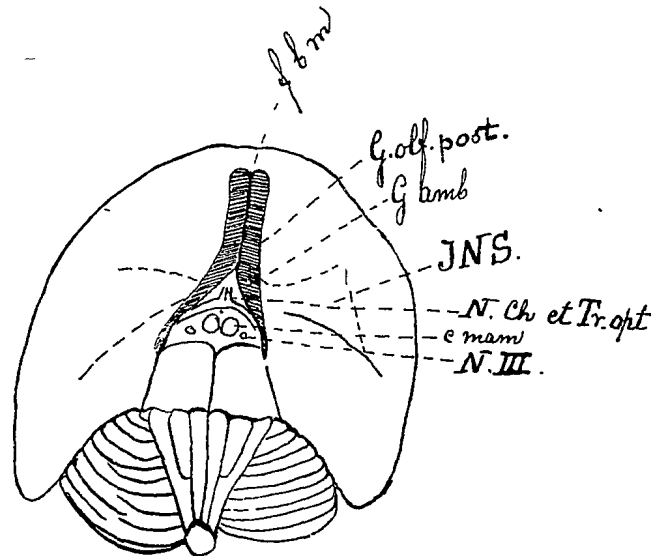 f b m
G. olf. post.
G amb
JNS.
N. Ch et Tr. opt
c mam
N. III.